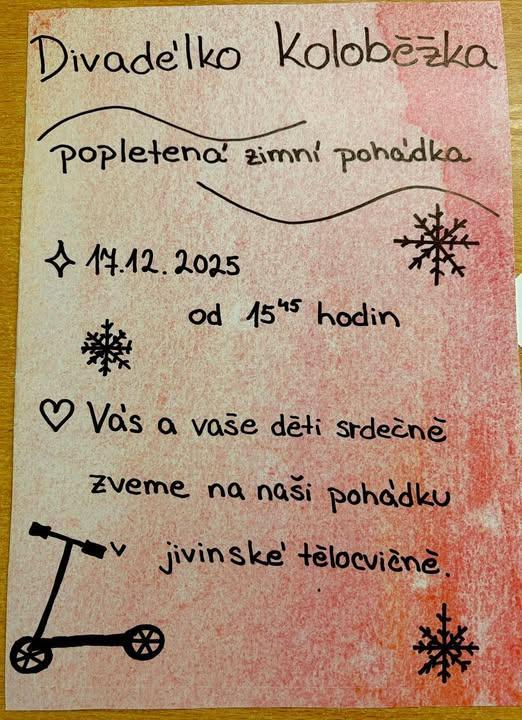 Divadélko Koloběžka
popletená zimní pohádka
17.12. 2025
od 15⁴⁵ hodin
Vás a vaše děti srdečně
zveme na naši pohádku
v jivinské tělocvičně.